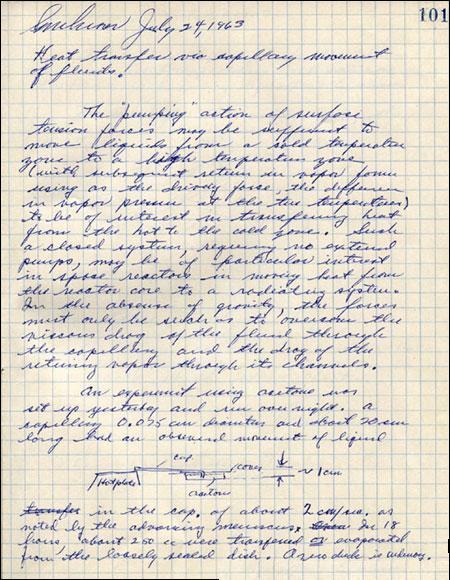 101
July 24, 1963
Heat transfer via capillary movement
of fluids.
The "pumping" action of surface
tension forces may be sufficient to
move liquids from a cold temperature
zone to a high temperature zone
(with subsequent return in vapor form
using as the driving force, the difference
in vapor pressure at the two temperatures)
to be of interest in transferring heat
from the hot to the cold zone. Such
a closed system, requiring no external
pumps, may be of particular interest
in space reactors in moving heat from
the reactor core to a radiating system.
In the absence of gravity, the forces
must only be such as to overcome the
viscous drag of the fluid through
the capillary and the drag of the
returning vapor through its channels.
An experiment using acetone was
set up yesterday and run over night. A
capillary 0.075 cm diameter and about 20 cm
long had an observed movement of liquid
cap
Hotplate
cover
acetone
~ 1 cm
transfer in the cap. of about 2 cm/sec. as
noted by the advancing meniscus. In 18
hours, about 200 cc were transferred or evaporated
from the loosely sealed dish. A redo is underway.